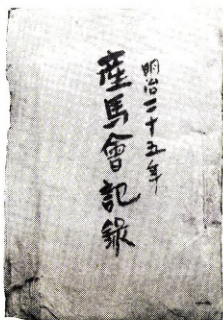 明治二十五年
産馬會記録